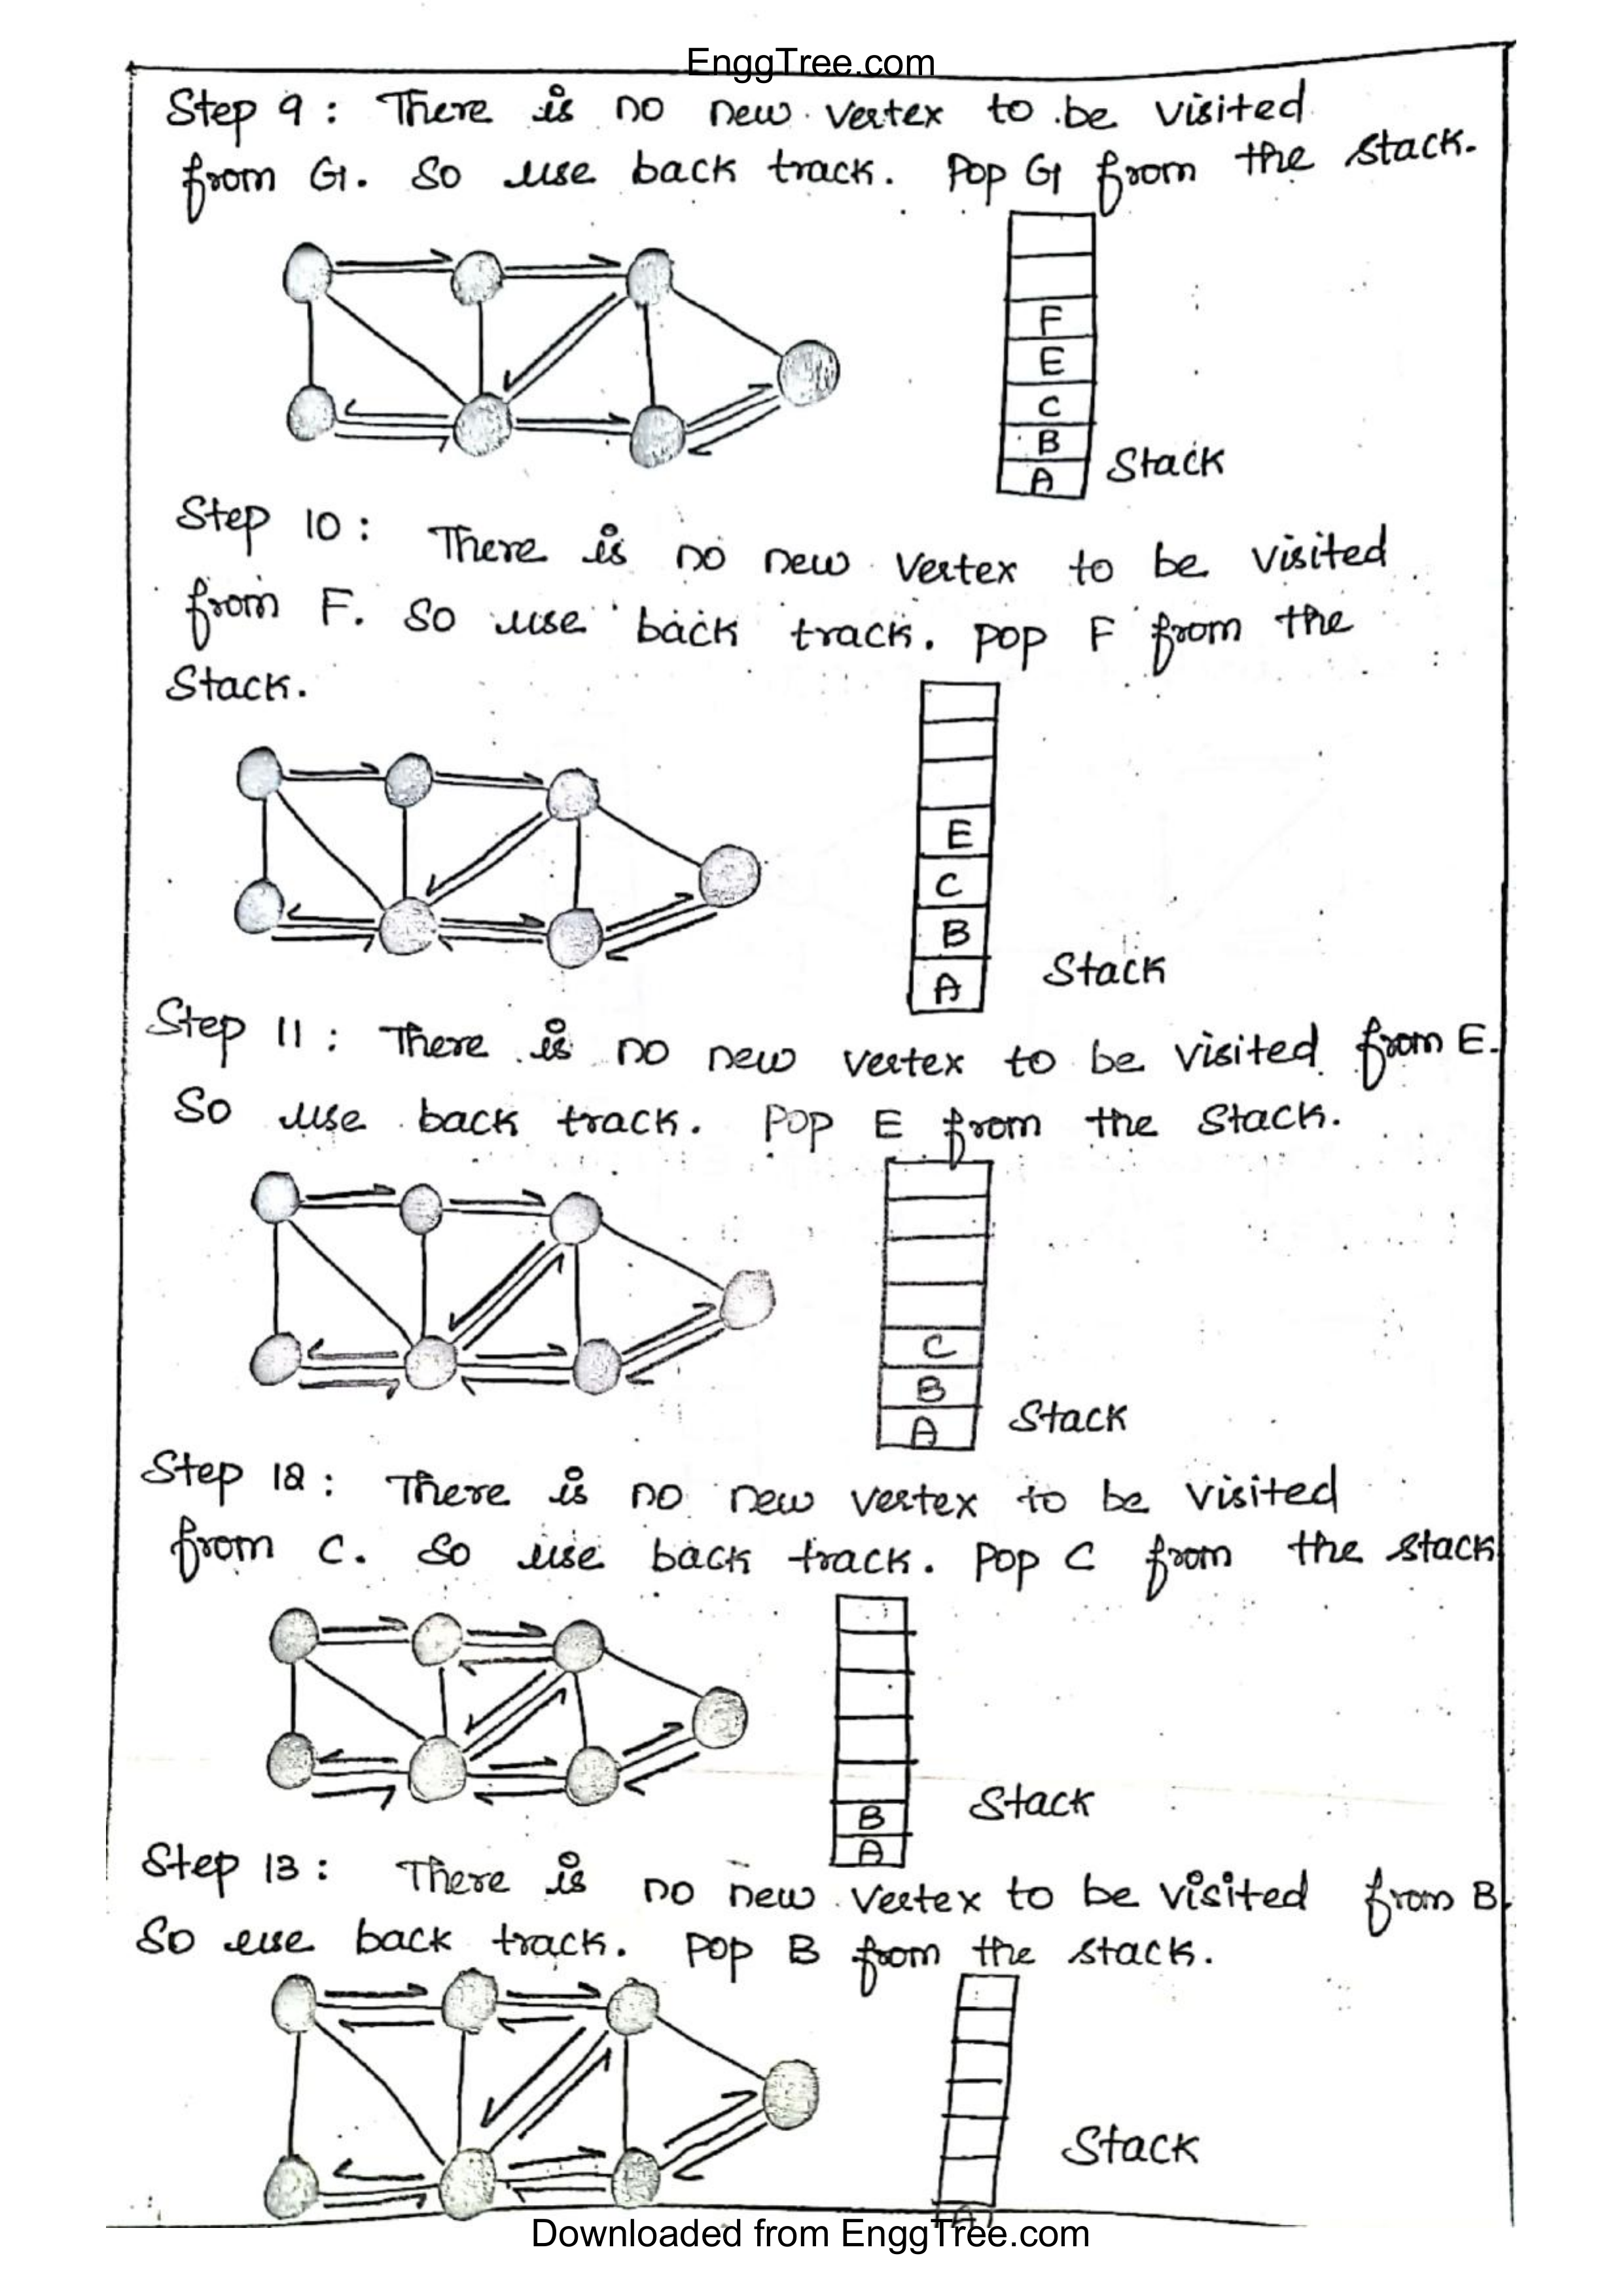 EnggTree.com
Step 9 : There is no new vertex to be visited
from G. So use back track. Pop G from the stack.
F
E
C
B
A
Stack
Step 10 : There is no new vertex to be visited
from F. So use back track. Pop F from the
Stack.
E
C
B
A
Stack
Step 11 : There is no new vertex to be visited from E.
So use back track. Pop E from the Stack.
C
B
A
Stack
Step 12 : There is no new vertex to be visited
from C. So use back track. Pop C from the stack
B
A
Stack
Step 13 : There is no new vertex to be visited from B.
So use back track. Pop B from the stack.
A
Stack
Downloaded from EnggTree.com